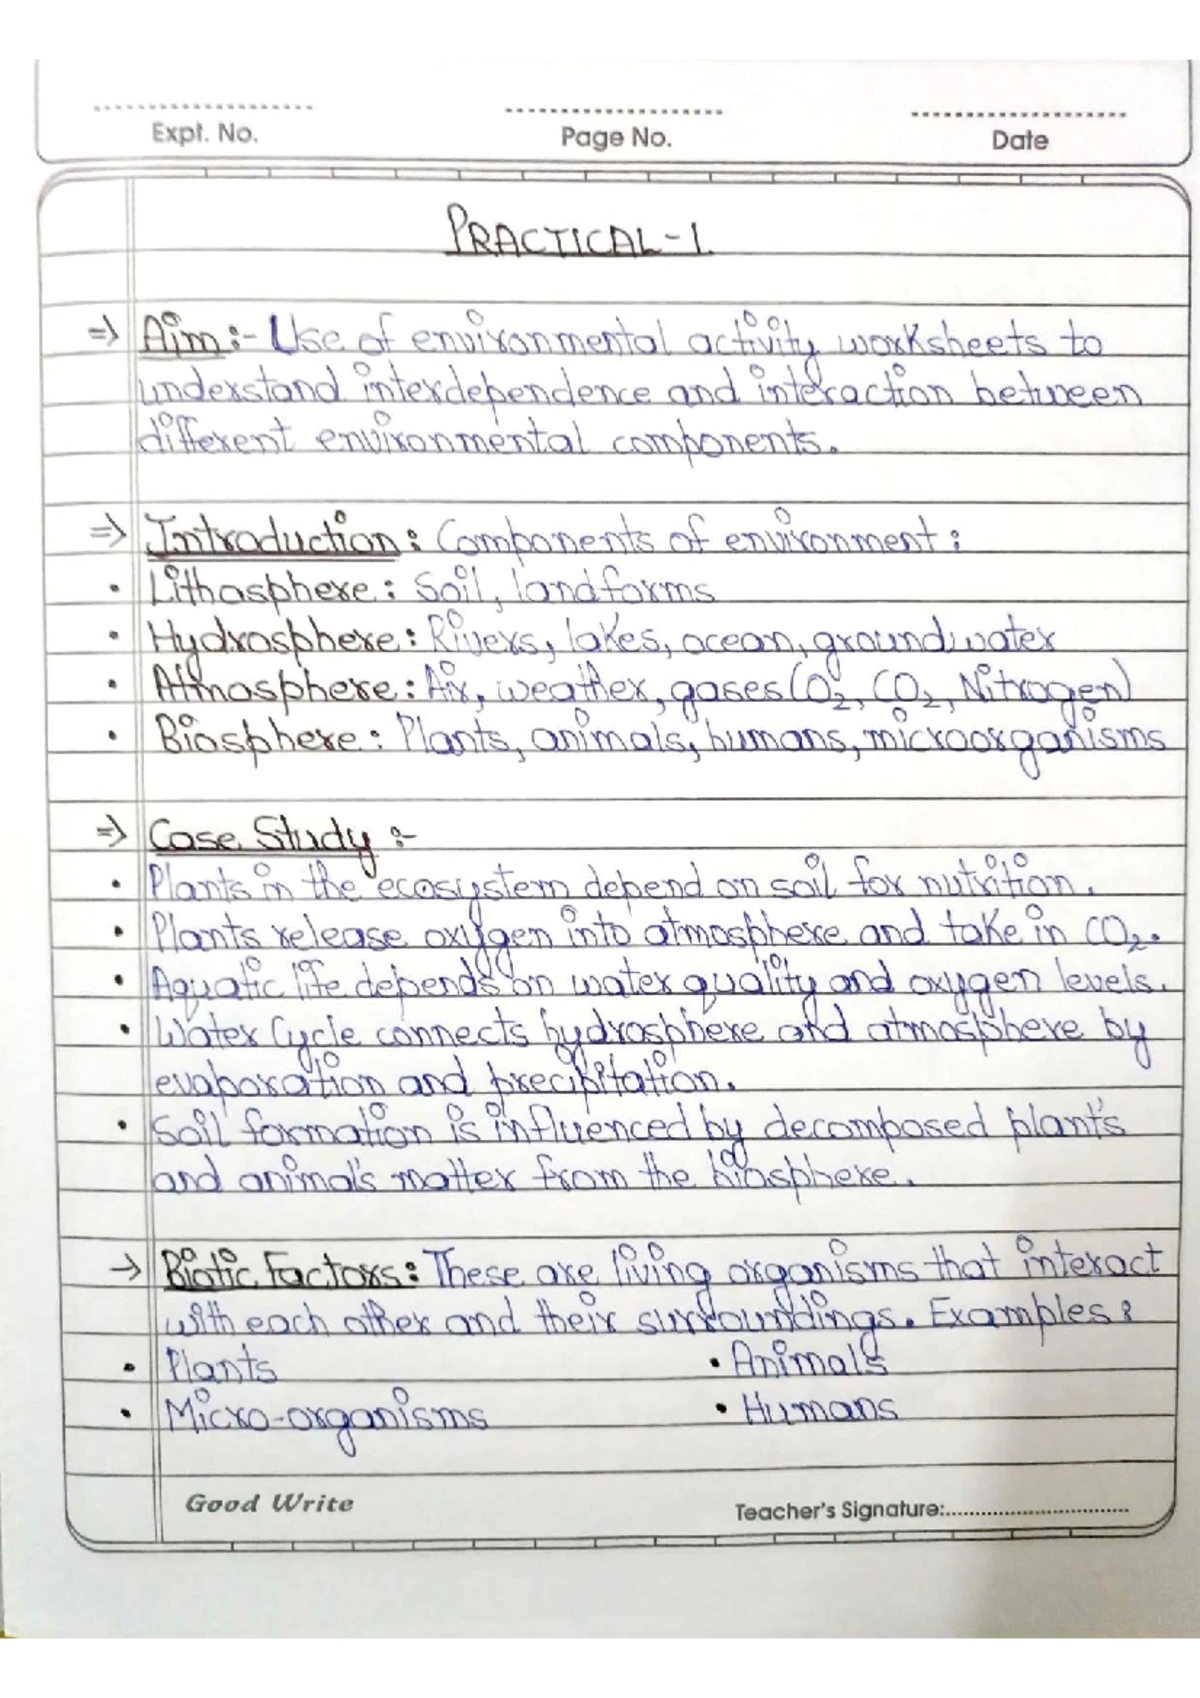 Expt. No.
Page No.
Date
PRACTICAL-1.
=> Aim:- Use of environmental activity worksheets to
understand interdependence and interaction between
different environmental components.
=> Introduction: Components of environment:
• Lithosphere: Soil, landforms
• Hydrosphere: Rivers, lakes, ocean, groundwater
• Atmosphere: Air, weather, gases (O₂, CO₂, Nitrogen)
• Biosphere: Plants, animals, humans, microorganisms
=> Case Study :-
• Plants in the ecosystem depend on soil for nutrition.
• Plants release oxygen into atmosphere and take in CO₂.
• Aquatic life depends on water quality and oxygen levels.
• Water Cycle connects hydrosphere and atmosphere by
evaporation and precipitation.
• Soil formation is influenced by decomposed plant's
and animal's matter from the biosphere.
→ Biotic Factors: These are living organisms that interact
with each other and their surroundings. Examples:
• Plants • Animals
• Micro-organisms • Humans
Good Write
Teacher's Signature: